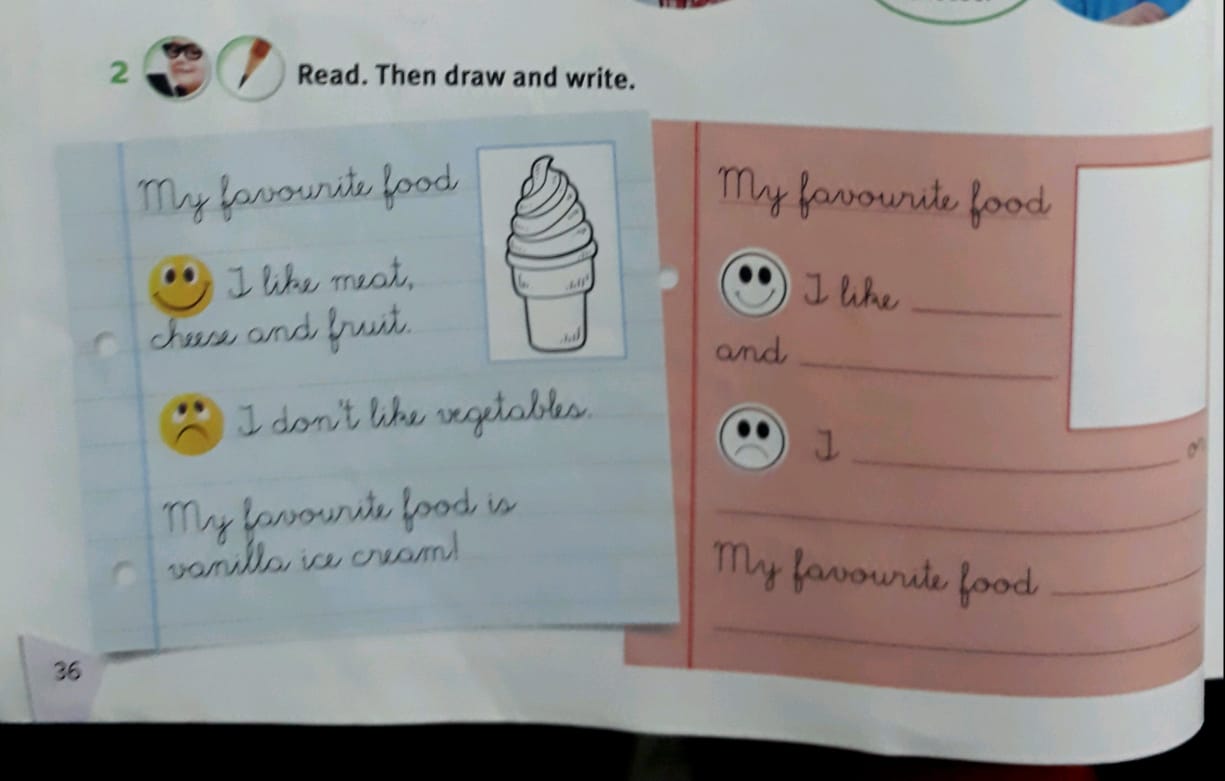 2 Read. Then draw and write.
My favourite food
I like meat,
cheese and fruit.
I don't like vegetables.
My favourite food is
vanilla ice cream!
My favourite food
I like
and
I
My favourite food
36